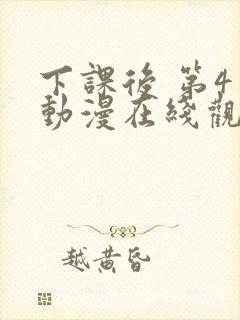 下課後 第4
動漫在綫觀
越黄昏